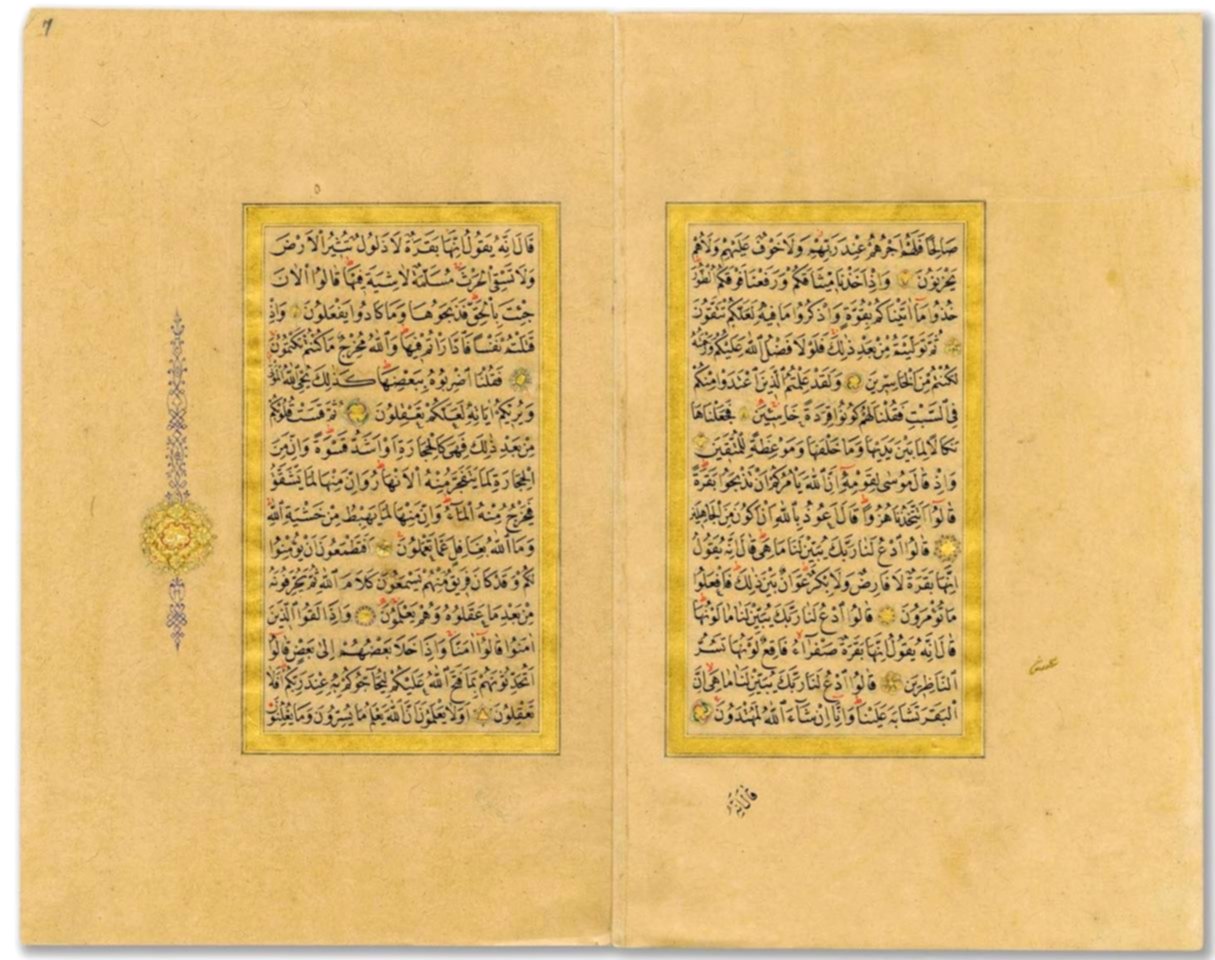 صَالِحًا فَلَهُمْ اَجْرُهُمْ عِنْدَ رَبِّهِمْ وَلَا خَوْفٌ عَلَيْهِمْ وَلَا هُمْ
يَحْزَنُونَ وَاِذْ اَخَذْنَا مِيثَاقَكُمْ وَرَفَعْنَا فَوْقَكُمُ الطُّورَ
خُذُوا مَا اٰتَيْنَاكُمْ بِقُوَّةٍ وَاذْكُرُوا مَا فِيهِ لَعَلَّكُمْ تَتَّقُونَ
ثُمَّ تَوَلَّيْتُمْ مِنْ بَعْدِ ذٰلِكَ فَلَوْلَا فَضْلُ اللّٰهِ عَلَيْكُمْ وَرَحْمَتُهُ
لَكُنْتُمْ مِنَ الْخَاسِرِينَ وَلَقَدْ عَلِمْتُمُ الَّذِينَ اعْتَدَوْا مِنْكُمْ
فِي السَّبْتِ فَقُلْنَا لَهُمْ كُونُوا قِرَدَةً خَاسِئِينَ فَجَعَلْنَاهَا
نَكَالًا لِمَا بَيْنَ يَدَيْهَا وَمَا خَلْفَهَا وَمَوْعِظَةً لِلْمُتَّقِينَ
وَاِذْ قَالَ مُوسٰى لِقَوْمِهِ اِنَّ اللّٰهَ يَأْمُرُكُمْ اَنْ تَذْبَحُوا بَقَرَةً
قَالُوا اَتَتَّخِذُنَا هُزُوًا قَالَ اَعُوذُ بِاللّٰهِ اَنْ اَكُونَ مِنَ الْجَاهِلِينَ
قَالُوا ادْعُ لَنَا رَبَّكَ يُبَيِّنْ لَنَا مَا هِيَ قَالَ اِنَّهُ يَقُولُ
اِنَّهَا بَقَرَةٌ لَا فَارِضٌ وَلَا بِكْرٌ عَوَانٌ بَيْنَ ذٰلِكَ فَافْعَلُوا
مَا تُؤْمَرُونَ قَالُوا ادْعُ لَنَا رَبَّكَ يُبَيِّنْ لَنَا مَا لَوْنُهَا
قَالَ اِنَّهُ يَقُولُ اِنَّهَا بَقَرَةٌ صَفْرَاءُ فَاقِعٌ لَوْنُهَا تَسُرُّ
النَّاظِرِينَ قَالُوا ادْعُ لَنَا رَبَّكَ يُبَيِّنْ لَنَا مَا هِيَ اِنَّ
الْبَقَرَ تَشَابَهَ عَلَيْنَا وَاِنَّا اِنْ شَاءَ اللّٰهُ لَمُهْتَدُونَ
قَالَ اِنَّهُ
7
قَالَ اِنَّهُ يَقُولُ اِنَّهَا بَقَرَةٌ لَا ذَلُولٌ تُثِيرُ الْاَرْضَ
وَلَا تَسْقِي الْحَرْثَ مُسَلَّمَةٌ لَا شِيَةَ فِيهَا قَالُوا الْاٰنَ
جِئْتَ بِالْحَقِّ فَذَبَحُوهَا وَمَا كَادُوا يَفْعَلُونَ وَاِذْ
قَتَلْتُمْ نَفْسًا فَادَّارَأْتُمْ فِيهَا وَاللّٰهُ مُخْرِجٌ مَا كُنْتُمْ تَكْتُمُونَ
فَقُلْنَا اضْرِبُوهُ بِبَعْضِهَا كَذٰلِكَ يُحْيِي اللّٰهُ الْمَوْتٰى
وَيُرِيكُمْ اٰيَاتِهِ لَعَلَّكُمْ تَعْقِلُونَ ثُمَّ قَسَتْ قُلُوبُكُمْ
مِنْ بَعْدِ ذٰلِكَ فَهِيَ كَالْحِجَارَةِ اَوْ اَشَدُّ قَسْوَةً وَاِنَّ مِنَ
الْحِجَارَةِ لَمَا يَتَفَجَّرُ مِنْهُ الْاَنْهَارُ وَاِنَّ مِنْهَا لَمَا يَشَّقَّقُ
فَيَخْرُجُ مِنْهُ الْمَاءُ وَاِنَّ مِنْهَا لَمَا يَهْبِطُ مِنْ خَشْيَةِ اللّٰهِ
وَمَا اللّٰهُ بِغَافِلٍ عَمَّا تَعْمَلُونَ اَفَتَطْمَعُونَ اَنْ يُؤْمِنُوا
لَكُمْ وَقَدْ كَانَ فَرِيقٌ مِنْهُمْ يَسْمَعُونَ كَلَامَ اللّٰهِ ثُمَّ يُحَرِّفُونَهُ
مِنْ بَعْدِ مَا عَقَلُوهُ وَهُمْ يَعْلَمُونَ وَاِذَا لَقُوا الَّذِينَ
اٰمَنُوا قَالُوا اٰمَنَّا وَاِذَا خَلَا بَعْضُهُمْ اِلٰى بَعْضٍ قَالُوا
اَتُحَدِّثُونَهُمْ بِمَا فَتَحَ اللّٰهُ عَلَيْكُمْ لِيُحَاجُّوكُمْ بِهِ عِنْدَ رَبِّكُمْ اَفَلَا
تَعْقِلُونَ اَوَلَا يَعْلَمُونَ اَنَّ اللّٰهَ يَعْلَمُ مَا يُسِرُّونَ وَمَا يُعْلِنُونَ